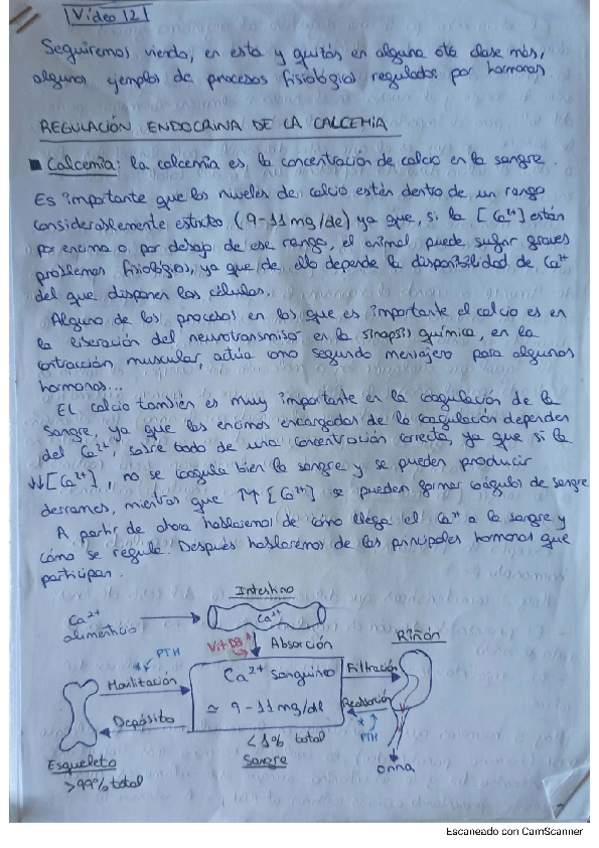 Vídeo 12
Seguiremos viendo, en esta y quizás en alguna otra clase más,
algunos ejemplos de procesos fisiológicos regulados por hormonas
REGULACIÓN ENDOCRINA DE LA CALCEMIA
■ Calcemia: la calcemia es, la concentración de calcio en la sangre.
Es importante que los niveles de calcio estén dentro de un rango
considerablemente estricto (9-11 mg/dl) ya que, si la [Ca²⁺] están
por encima o por debajo de ese rango, el animal puede sufrir graves
problemas fisiológicos, ya que de ello depende la disponibilidad de Ca²⁺
del que disponen las células.
Alguno de los procesos en los que es importante el calcio es en
la liberación del neurotransmisor en la sinapsis química, en la
contracción muscular, actúa como segundo mensajero para algunas
hormonas...
El calcio también es muy importante en la coagulación de la
sangre, ya que las encimas encargadas de la coagulación dependen
del Ca²⁺, sobre todo de una concentración correcta, ya que si la
↓↓[Ca²⁺], no se coagula bien la sangre y se pueden producir
derrames, mientras que ↑↑ [Ca²⁺] se pueden formar coágulos de sangre
A partir de ahora hablaremos de cómo llega el Ca²⁺ a la sangre y
cómo se regula. Después hablaremos de las principales hormonas que
participan.
Intestino
Ca²⁺
alimenticio
Ca²⁺
Vit D3
Absorción
Riñón
PTH
Movilización
Ca²⁺ sanguíneo
≃ 9-11 mg/dl
Filtración
Depósito
Reabsorción
PTH
<1% total
Sangre
Esqueleto
>99% total
orina
Escaneado con CamScanner